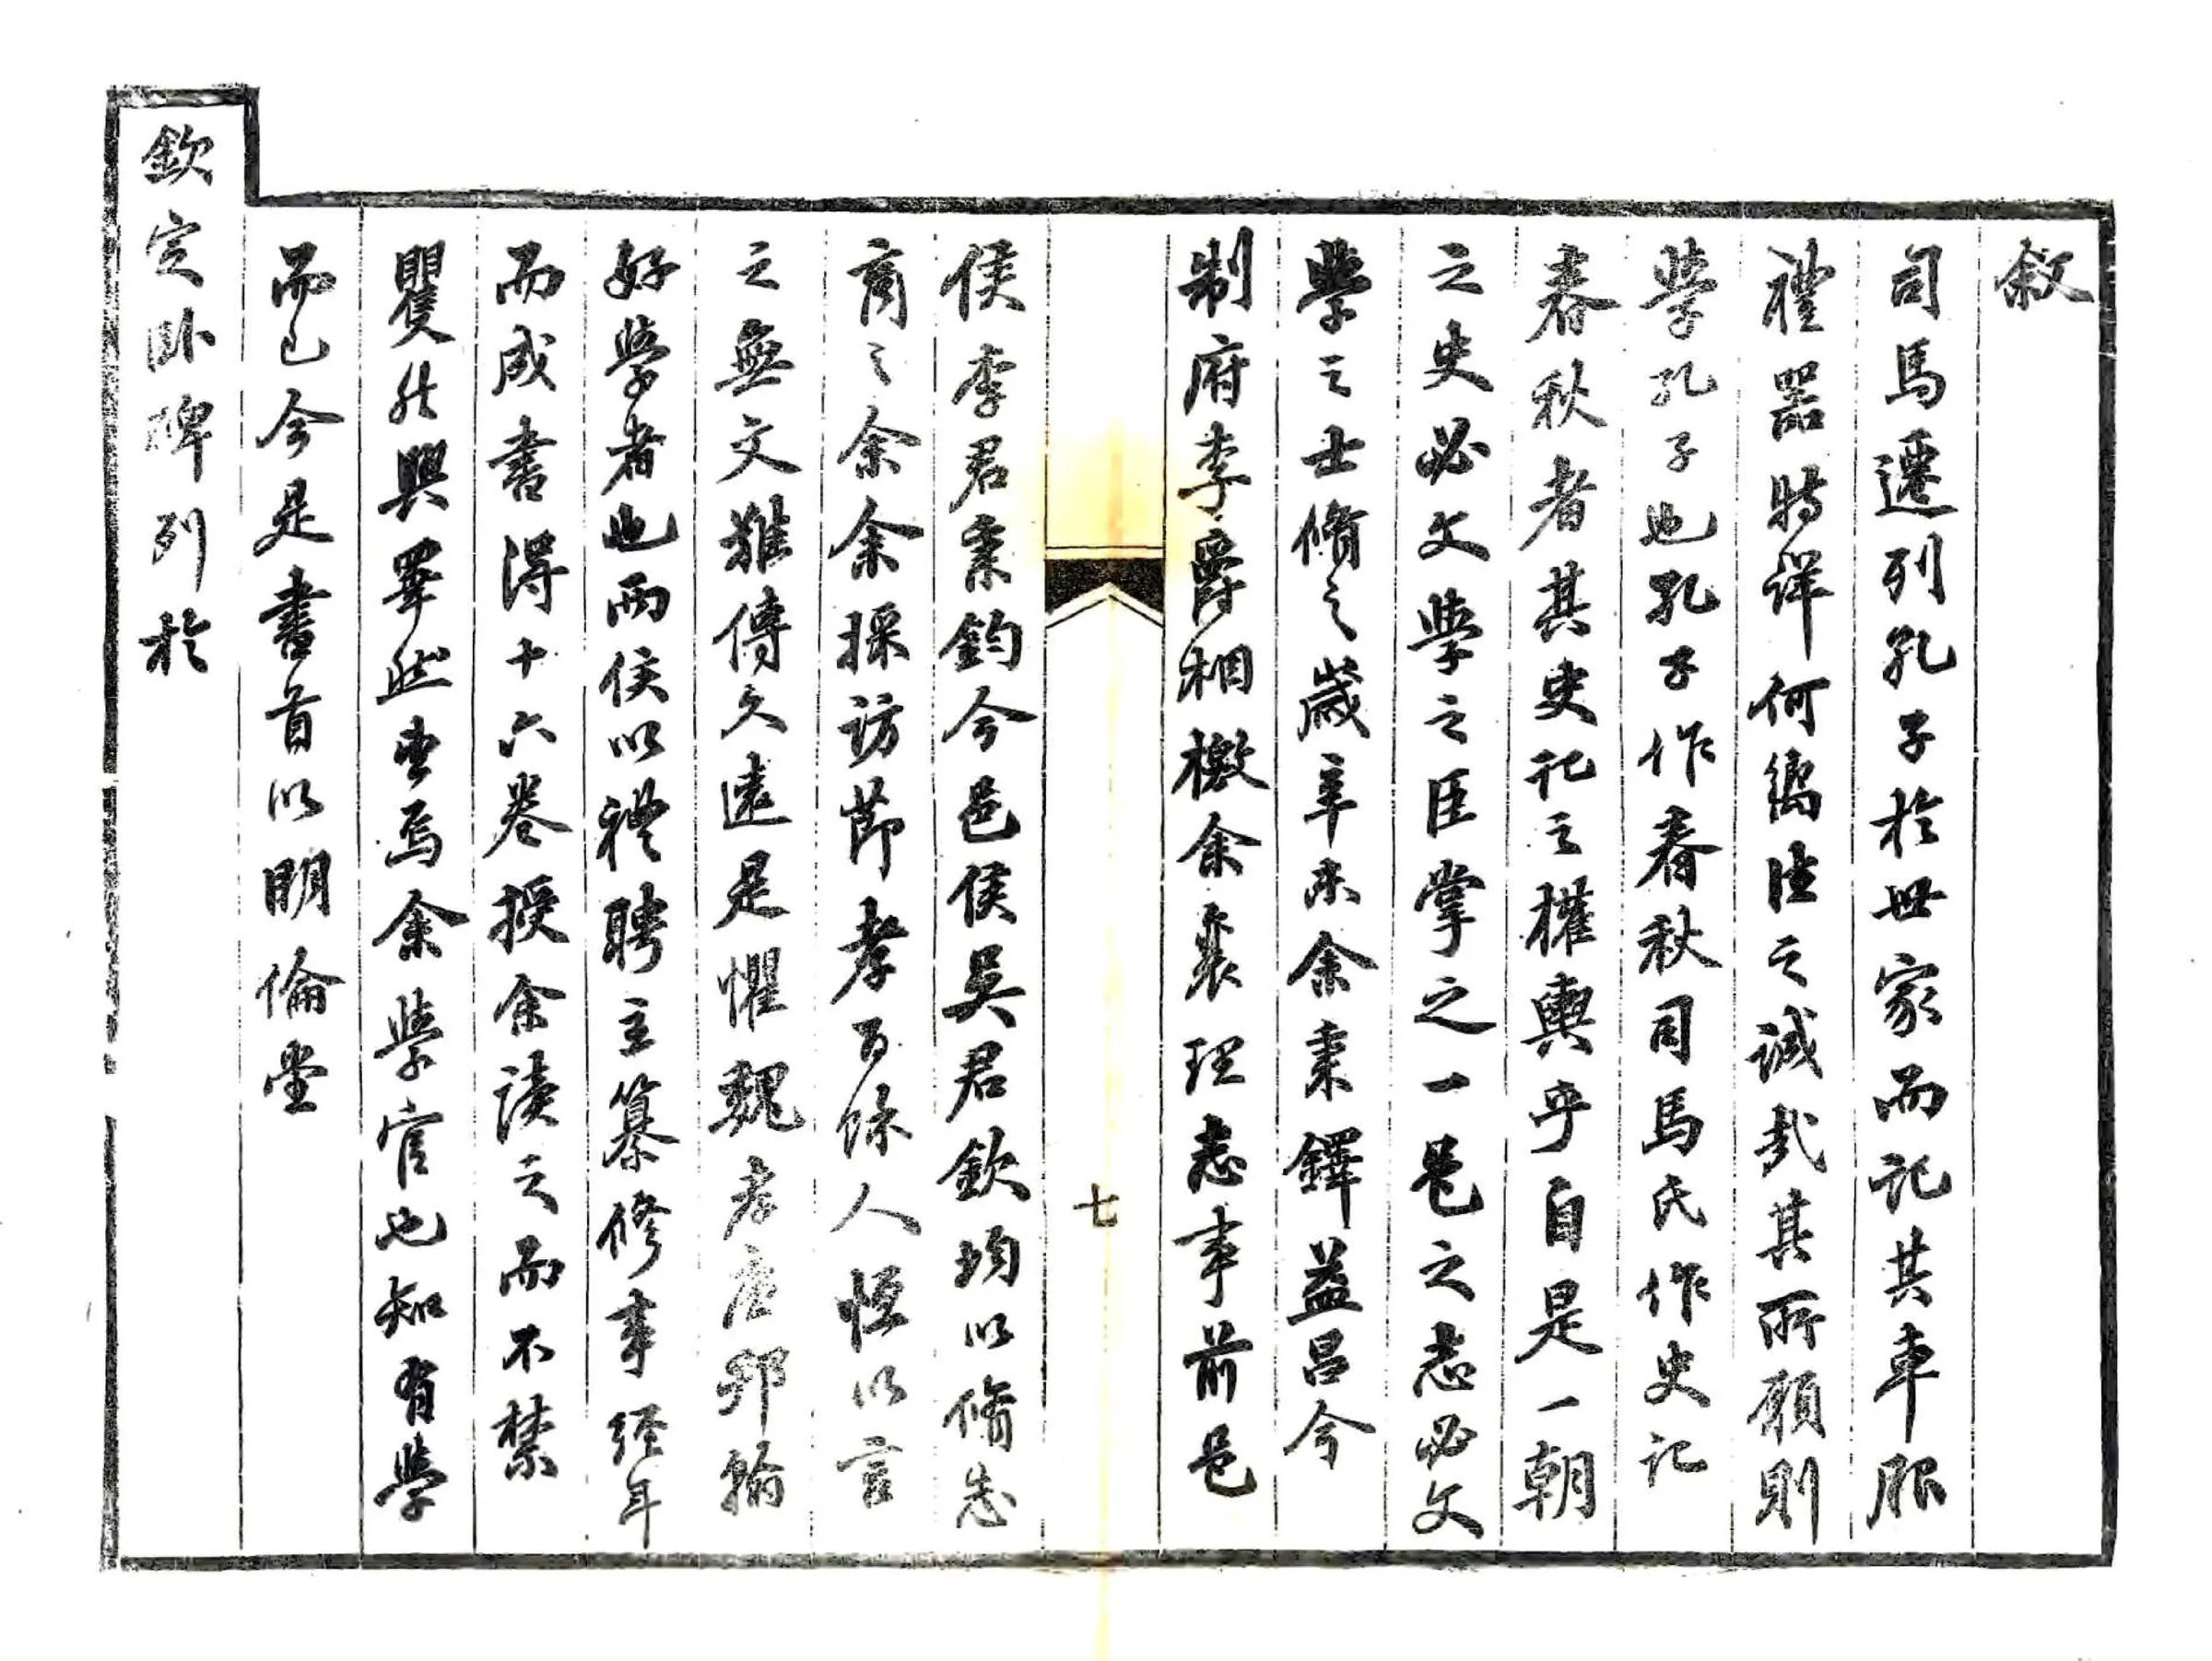 敘
司馬遷列孔子於世家而記其車服
禮器特詳何嚮往之誠哉其所願則
學孔子也孔子作春秋司馬氏作史記
春秋者其史記之權輿乎自是一朝
之史必文學之臣掌之一邑之志必文
學之士脩之歲辛未余秉鐸益昌今
制府李爵相檄余襄理志事前邑
七
侯李君秉鈞今邑侯吳君欽均以脩志
商之余余採訪節孝百餘人恆以言
之無文難傳久遠是懼魏孝廉邦翰
好學者也兩侯以禮聘主纂修事經年
而成書得十六卷授余讀之而不禁
瞿然興睪然望焉余學官也知有學
而已今是書首以明倫堂
欽定卧碑列於